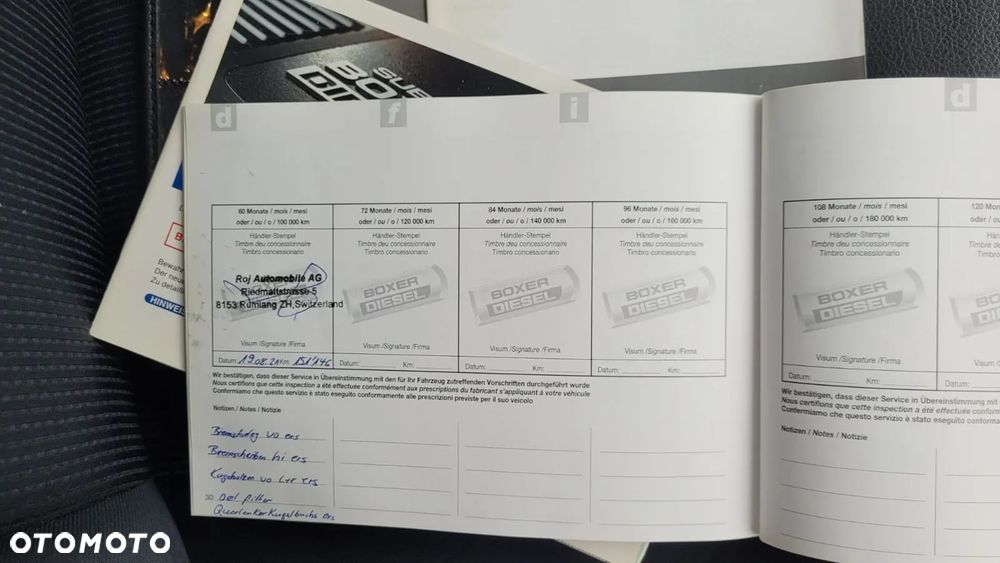 SUBARU
BOXER
DIESEL
d
f
i
d
60 Monate / mois / mesi
oder / ou / o / 100 000 km
Händler-Stempel
Timbre deu concessionnaire
Timbro concessionario
Roj Automobile AG
Riedmattstrasse 5
8153 Rümlang ZH, Switzerland
Visum /Signature /Firma
Datum: 19.08.21 Km: 151'146
72 Monate / mois / mesi
oder / ou / o / 120 000 km
Händler-Stempel
Timbre deu concessionnaire
Timbro concessionario
BOXER
DIESEL
Visum /Signature /Firma
Datum: Km:
84 Monate / mois / mesi
oder / ou / o / 140 000 km
Händler-Stempel
Timbre deu concessionnaire
Timbro concessionario
BOXER
DIESEL
Visum /Signature /Firma
Datum: Km:
96 Monate / mois / mesi
oder / ou / o / 160 000 km
Händler-Stempel
Timbre deu concessionnaire
Timbro concessionario
BOXER
DIESEL
Visum /Signature /Firma
Datum: Km:
Wir bestätigen, dass dieser Service in Übereinstimmung mit den für Ihr Fahrzeug zutreffenden Vorschriften durchgeführt wurde
Nous certifions que cette inspection a été effectuée conformément aux prescriptions du fabricant s'appliquant à votre véhicule
Confermiamo che questo servizio è stato eseguito conformemente alle prescrizioni previste per il suo veicolo
Notizen / Notes / Notizie
Bremsbelag vo ers
Bremsscheiben hi ers
vo L+R ers
Oel Filter
Querlenker Kugelbuchs ers
30
108 Monate / mois / mesi
oder / ou / o / 180 000 km
Händler-Stempel
Timbre deu concessionnaire
Timbro concessionario
BOXER
DIESEL
Visum /Signature /Firma
Datum: Km:
120
oder / ou / o
Datum:
Wir bestätigen, dass dieser Service in Übereinstimmung mit
Nous certifions que cette inspection a été effectuée
Confermiamo che questo servizio è stato eseguito
Notizen / Notes / Notizie
Bewahr
Der neue
HINWEIS
OTOMOTO